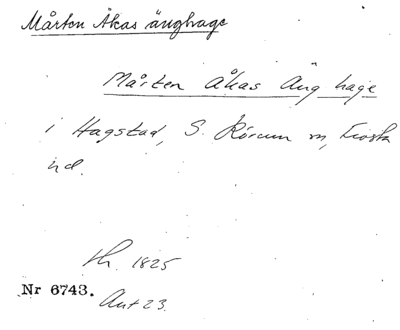 Mårten Åkas änghage
Mårten Åkas Äng hage
i Hagstad, S. Rörum sn, Frosta
hd.
lh. 1825
Nr 6743.
Akt 23.